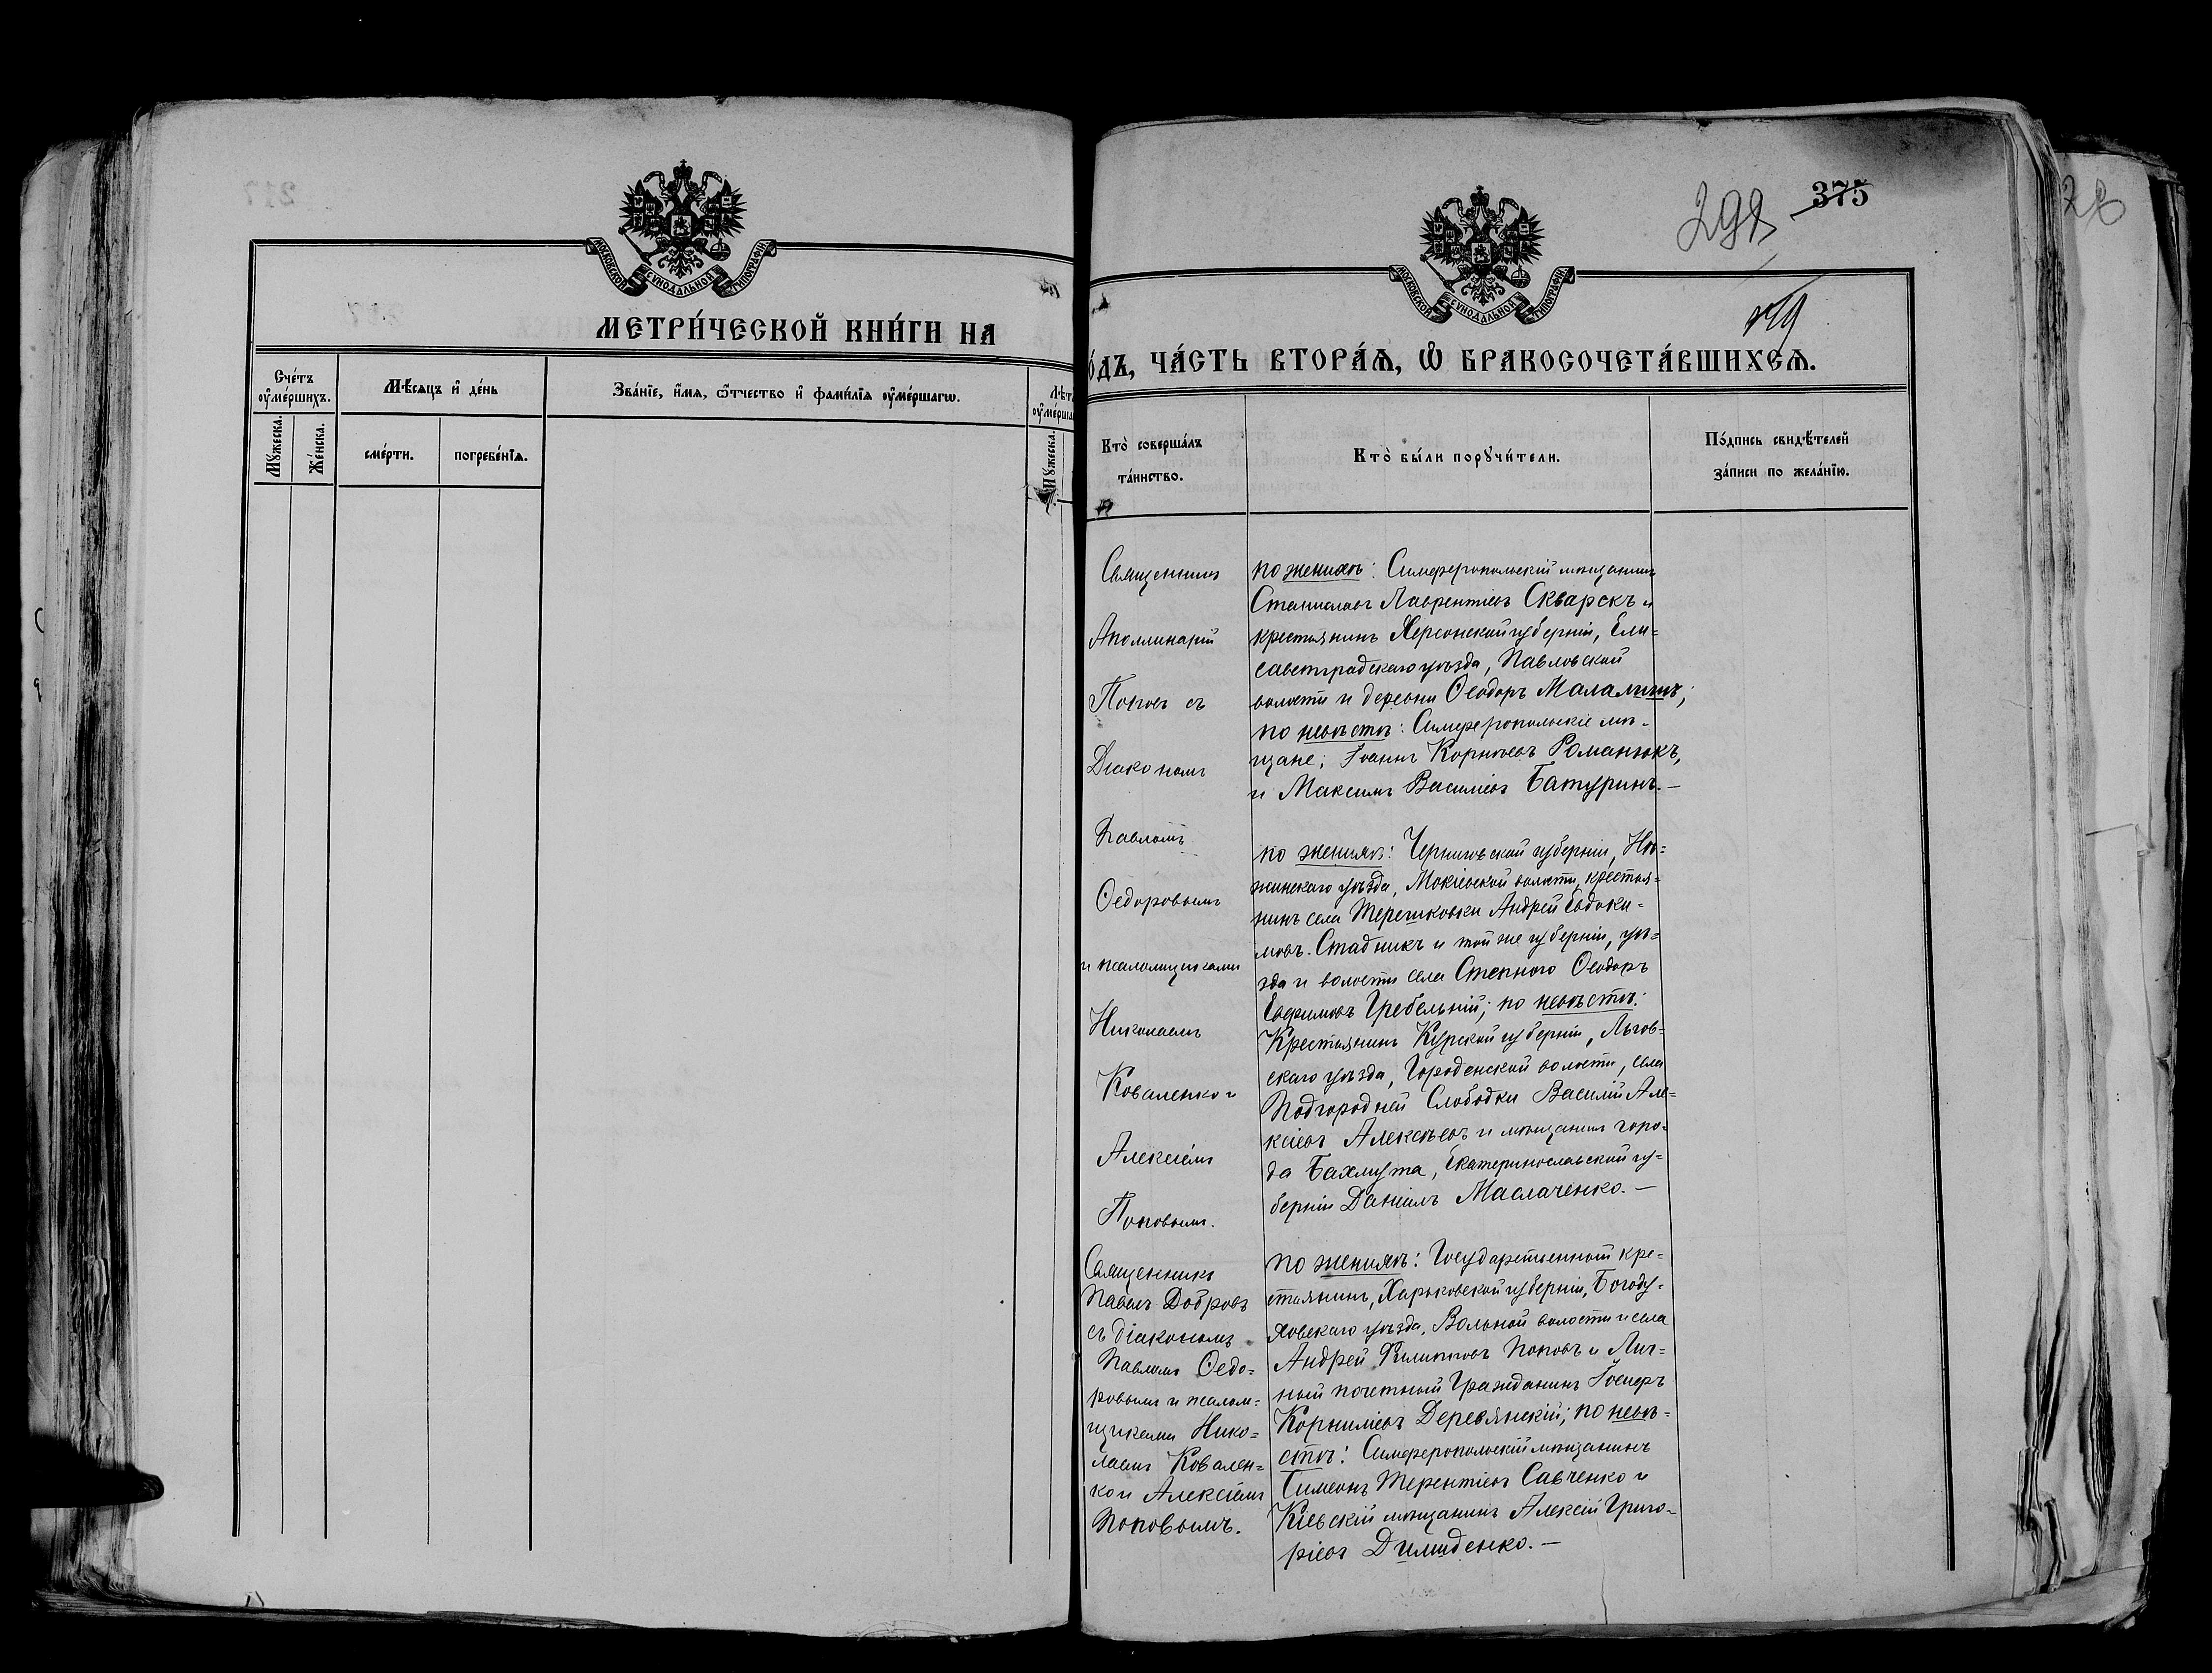 МОСКОВСКОЙ СѴНОДАЛЬНОЙ ТИПОГРАФІИ
МЕТРИ́ЧЕСКОЙ КНИ́ГИ НА
Сче́тъ ᲂу҆ме́ршихъ.
Мꙋ́жеска.
Же́нска.
Мѣ́сяцъ и҆ де́нь
сме́рти.
погребе́нїѧ.
Зва́нїе, и҆́мѧ, ѻ҆́тчество и҆ фами́лїѧ ᲂу҆ме́ршагѡ.
Лѣт
ᲂу҆ме́рша
Мꙋ́жеска.
298
375
МОСКОВСКОЙ СѴНОДАЛЬНОЙ ТИПОГРАФІИ
о́дъ, ча́сть втора́ѧ, ѡ҆ бракосочета́вшихсѧ.
Кто̀ соверша́лъ
та́инство.
Кто̀ бы́ли порꙋчи́тели.
По́дпись свидѣ́телей
за́писи по жела́нїю.
Священникъ
Аполлинарій
Поповъ съ
Діакономъ
Павломъ
Ѳедоровымъ
и псаломщиками
Николаемъ
Коваленко и
Алексіемъ
Поповымъ.
по женихѣ: Симферопольскій мѣщанинъ
Станиславъ Лаврентіевъ Скварскъ и
крестьянинъ Херсонской губерніи, Ели=
саветградскаго уѣзда, Павловской
волости и деревни Ѳеодоръ Малалишъ;
по невѣстѣ: Симферопольскіе мѣ-
щане; Іоаннъ Корнѣевъ Романюкъ,
и Максимъ Василіевъ Батуринъ.—
по женихѣ: Черниговской губерніи, Нѣ=
жинскаго уѣзда, Мокіевской волости, крестья=
нинъ села Терешковки Андрей Евдоки-
мовъ Стадникъ и той же губерніи, уѣ=
зда и волости села Степного Ѳеодоръ
Евфимовъ Гребельній; по невѣстѣ:
Крестьянинъ Курской губерніи, Льгов=
скаго уѣзда, Городенской волости, села
Подгородней Слободки Василій Але=
ксіевъ Алексѣевъ и мѣщанинъ горо-
да Бахмута, Екатеринославской гу=
берніи Даніилъ Маслаченко.—
Священникъ
Павелъ Добровъ
съ діакономъ
Павломъ Ѳедо=
ровымъ и псалом=
щиками Нико=
лаемъ Ковален=
ко и Алексіемъ
Поповымъ.
по женихѣ: Государственный кре=
стьянинъ, Харьковской губерніи, Богоду-
ховскаго уѣзда, Вольной волости и села
Андрей Филипповъ Поповъ и Лич=
ный почетный Гражданинъ Іосифъ
Корниліевъ Деревянскій; по невѣ=
стѣ: Симферопольскій мѣщанинъ
Симеонъ Терентіевъ Савченко и
Кіевскій мѣщанинъ Алексій Григо-
ріевъ Димиденко.—